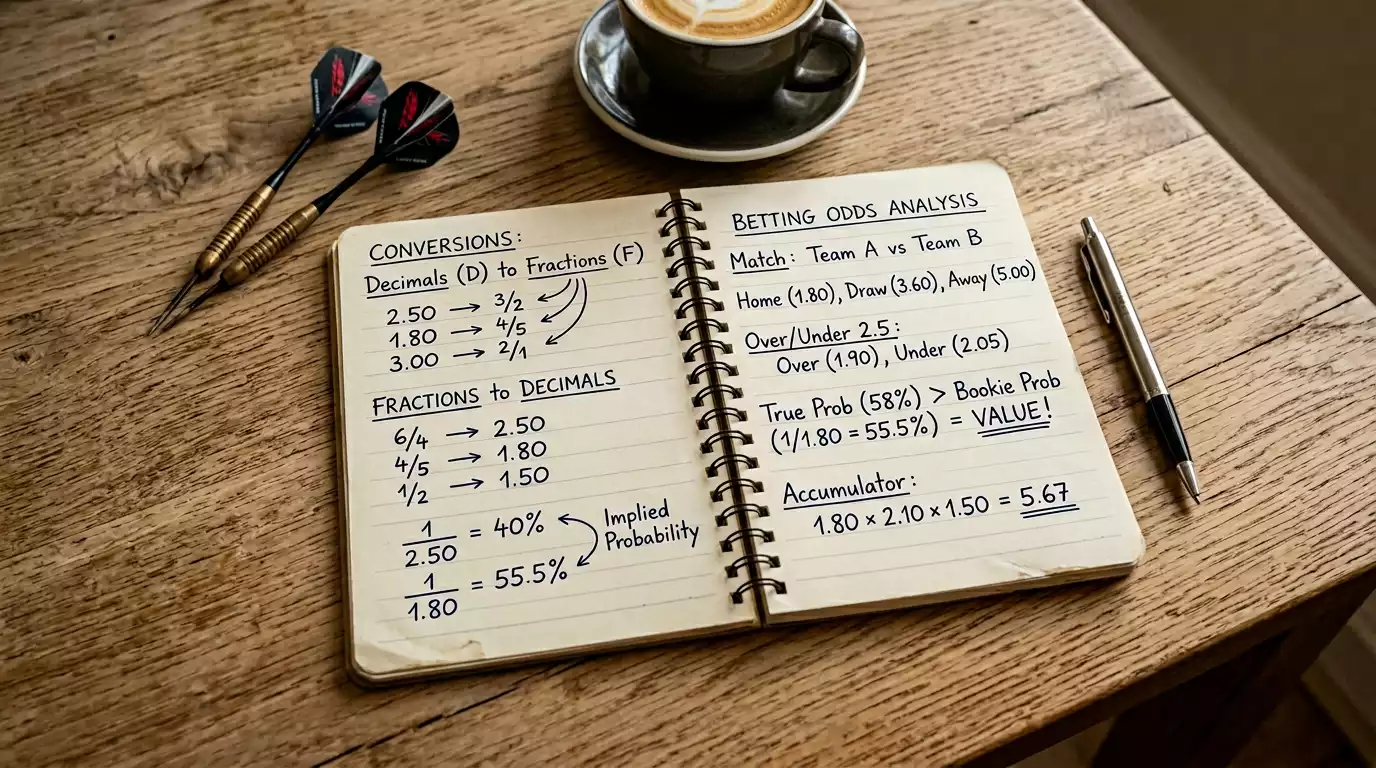 CONVERSIONS:
Decimals (D) to Fractions (F)
2.50 → 3/2
1.80 → 4/5
3.00 → 2/1
FRACTIONS to DECIMALS
6/4 → 2.50
4/5 → 1.80
1/2 → 1.50
1/2.50 = 40%
Implied
Probability
1/1.80 = 55.5%
BETTING ODDS ANALYSIS
Match: Team A vs Team B
Home (1.80), Draw (3.60), Away (5.00)
Over/Under 2.5:
Over (1.90), Under (2.05)
True Prob (58%) > Bookie Prob
(1/1.80 = 55.5%) = VALUE!
Accumulator:
1.80 × 2.10 × 1.50 = 5.67